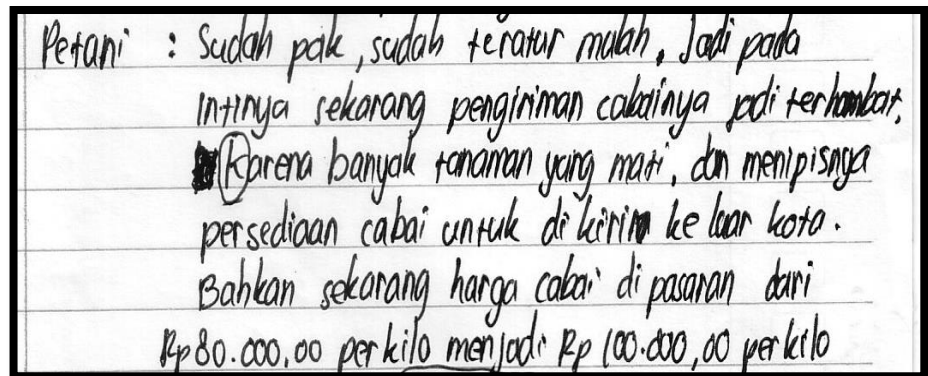 Petani : Sudah pak, sudah teratur malah. Jadi pada
intinya sekarang pengiriman cabainya jadi terhambat,
Karena banyak tanaman yang mati, dan menipisnya
persediaan cabai untuk di kirim ke luar kota.
Bahkan sekarang harga cabai di pasaran dari
Rp 80.000,00 per kilo menjadi Rp 100.000,00 per kilo